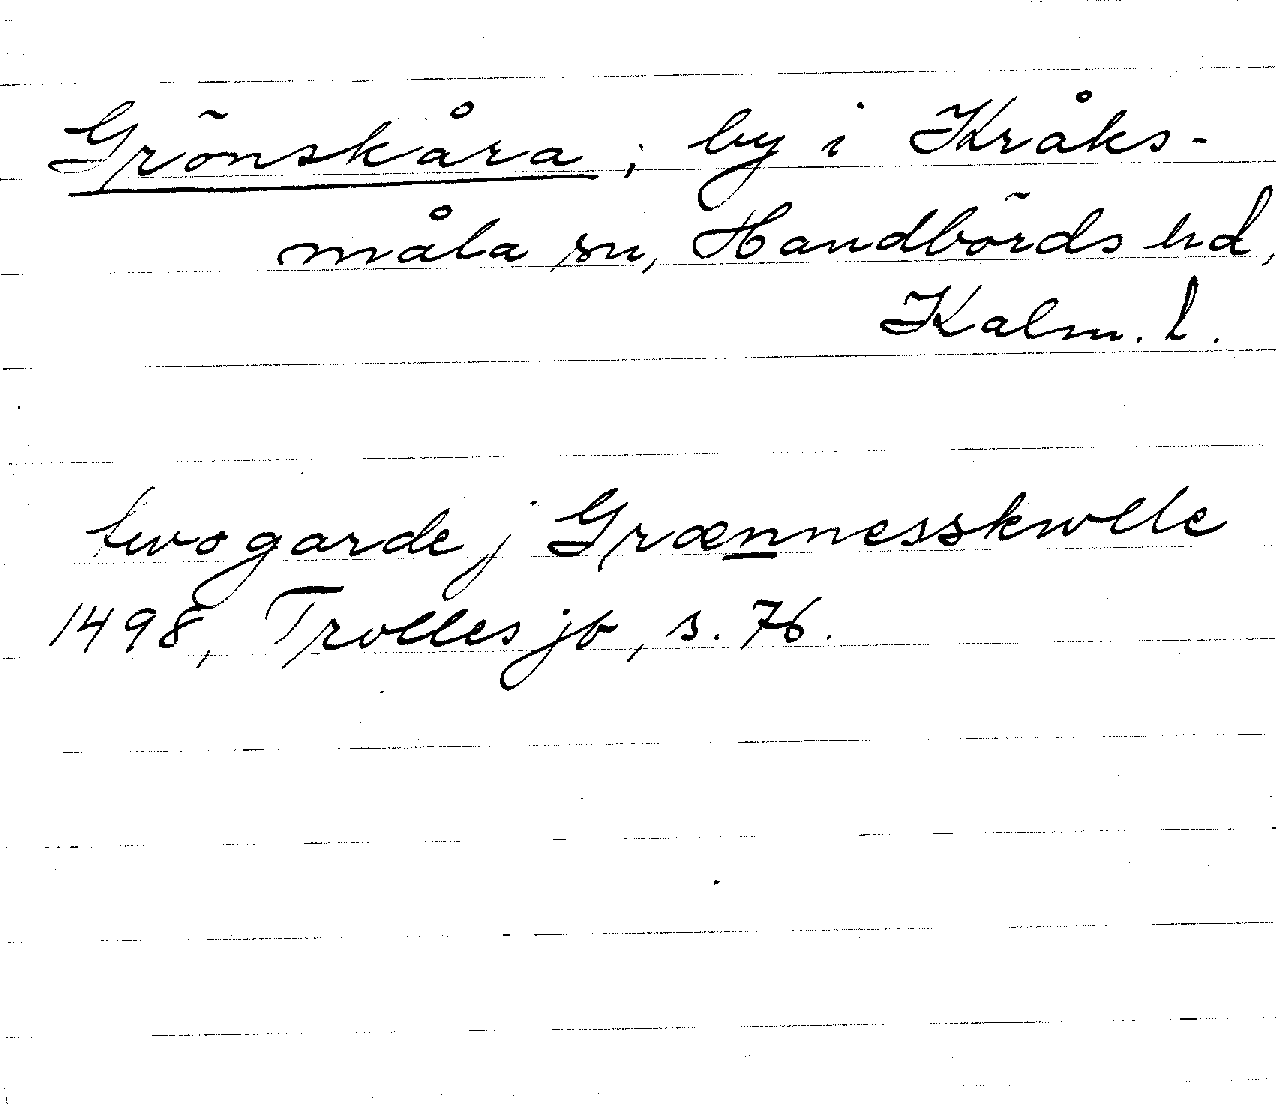 Grönskåra, by i Kråks-
måla sn, Handbörds hd,
Kalm. l.
twogarde j Grænnesskwlle
1498, Trolles jb, s. 76.